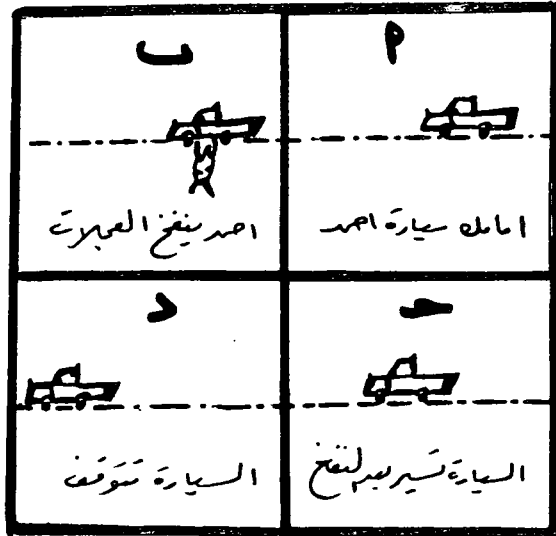 م
امامك سيارة احمد
ب
احمد ينفخ العجلات
حـ
السيارة تسير بعد النفخ
د
السيارة تتوقف